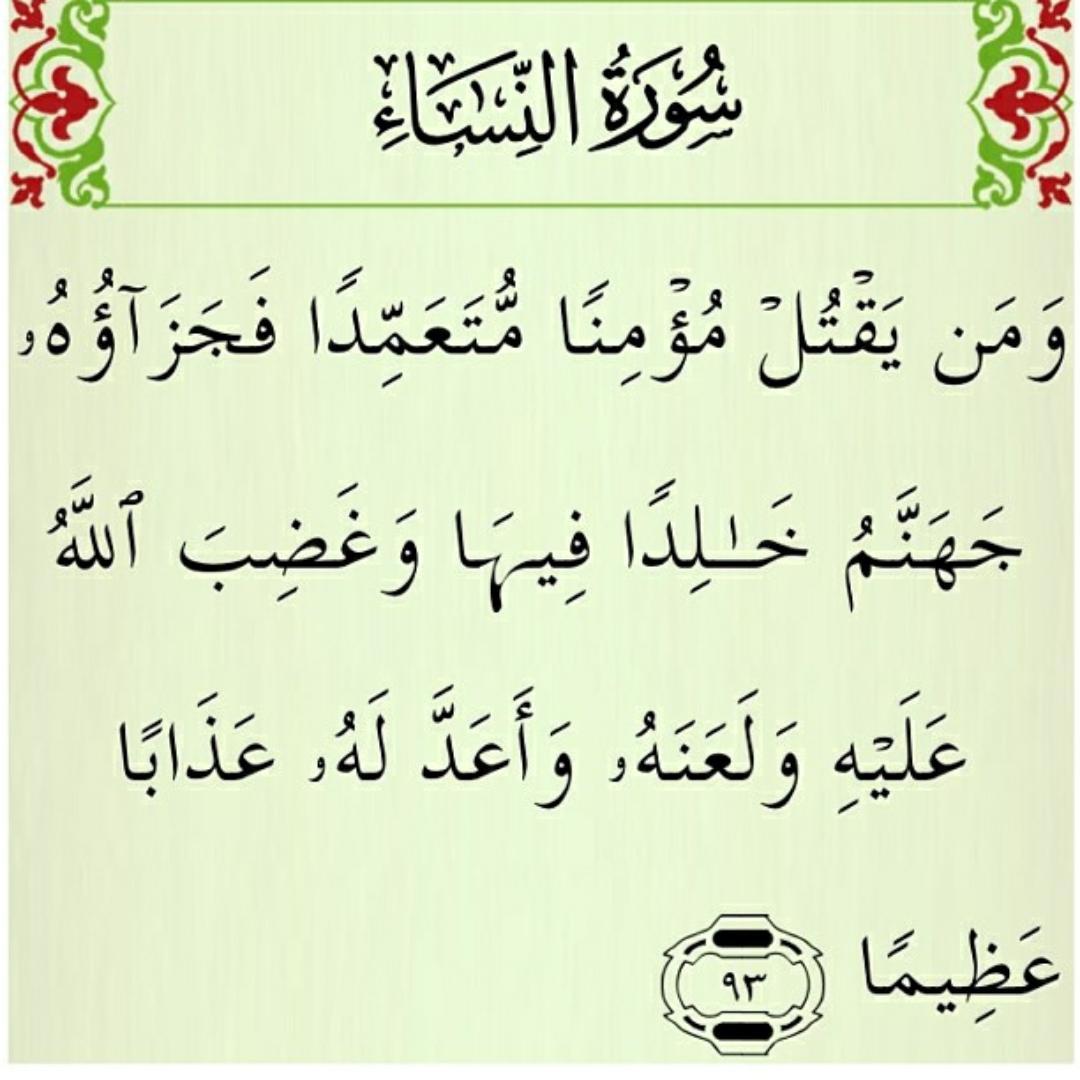 سُورَةُ النِّسَاءِ
وَمَن يَقْتُلْ مُؤْمِنًا مُّتَعَمِّدًا فَجَزَآؤُهُۥ
جَهَنَّمُ خَـٰلِدًا فِيهَا وَغَضِبَ ٱللَّهُ
عَلَيْهِ وَلَعَنَهُۥ وَأَعَدَّ لَهُۥ عَذَابًا
عَظِيمًا ٩٣